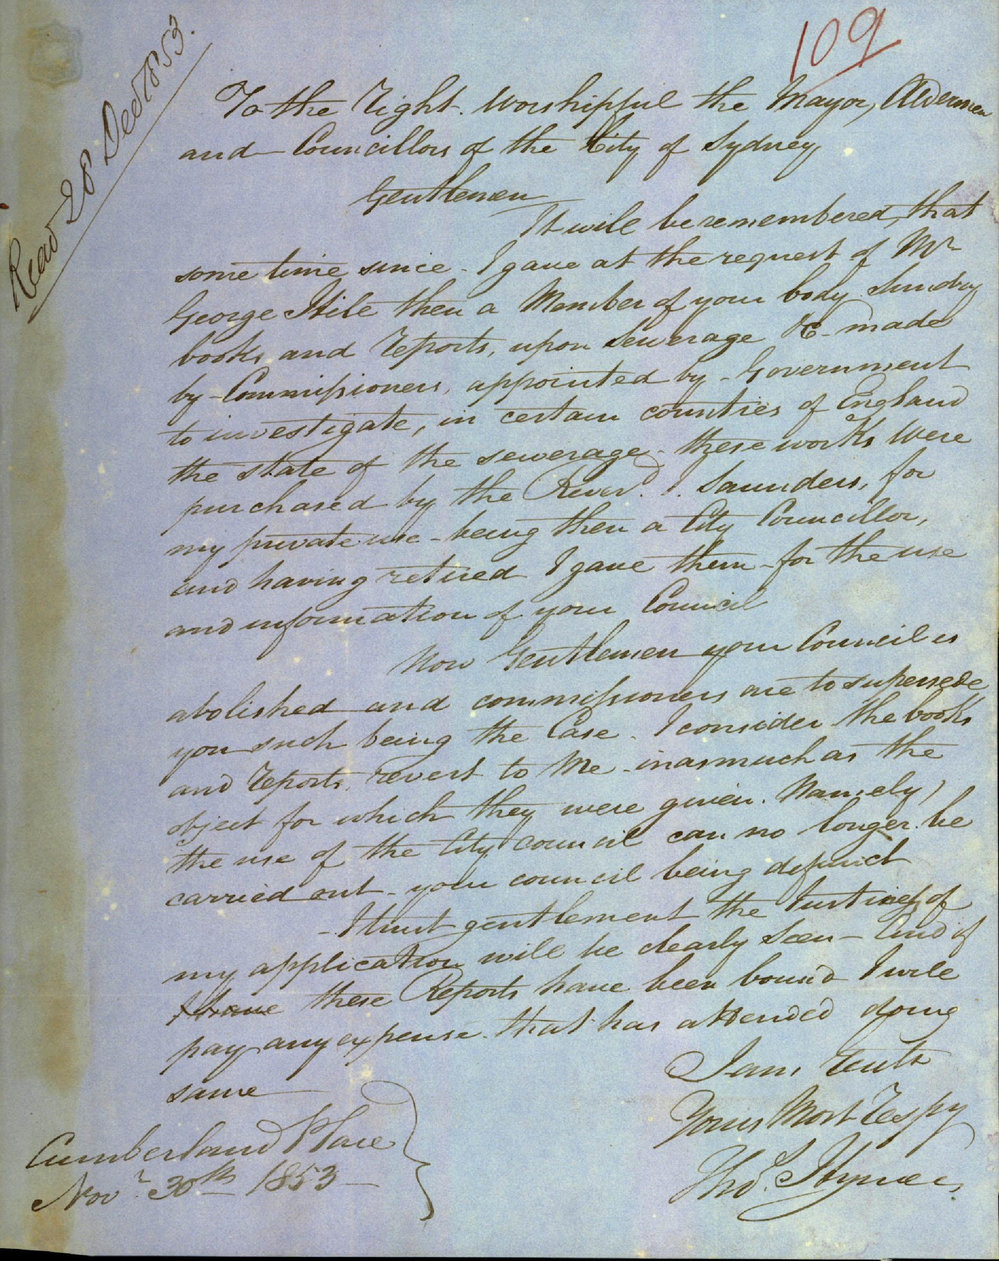 109
Read 28 Decr 1853.
To the Right Worshipful the Mayor, Aldermen
and Councillors of the City of Sydney
Gentlemen
It will be remembered, that
some time since - I gave at the request of Mr
George Hile then a Member of your body Sundry
books and Reports, upon Sewerage &c made
by Commissioners, appointed by Government
to investigate, in certain counties of England
the state of the sewerage - these works were
purchased by the Revd. J. Saunders, for
my private use - being then a City Councillor,
and having retired I gave them - for the use
and information of your Council
Now Gentlemen your Council is
abolished and commissioners are to supersede
you such being the Case - I consider the books
and reports, revert to Me - inasmuch as the
object for which they were given. Namely,
the use of the City Council can no longer be
carried out - your council being defunct
- I trust gentlement the Justice of
my application will be clearly seen - And if
these Reports have been bound I will
pay any expense that has attended doing
same
I am, Gents
Yours Most Respy
Thos.
Cumberland Place
Novr 30th 1853 -